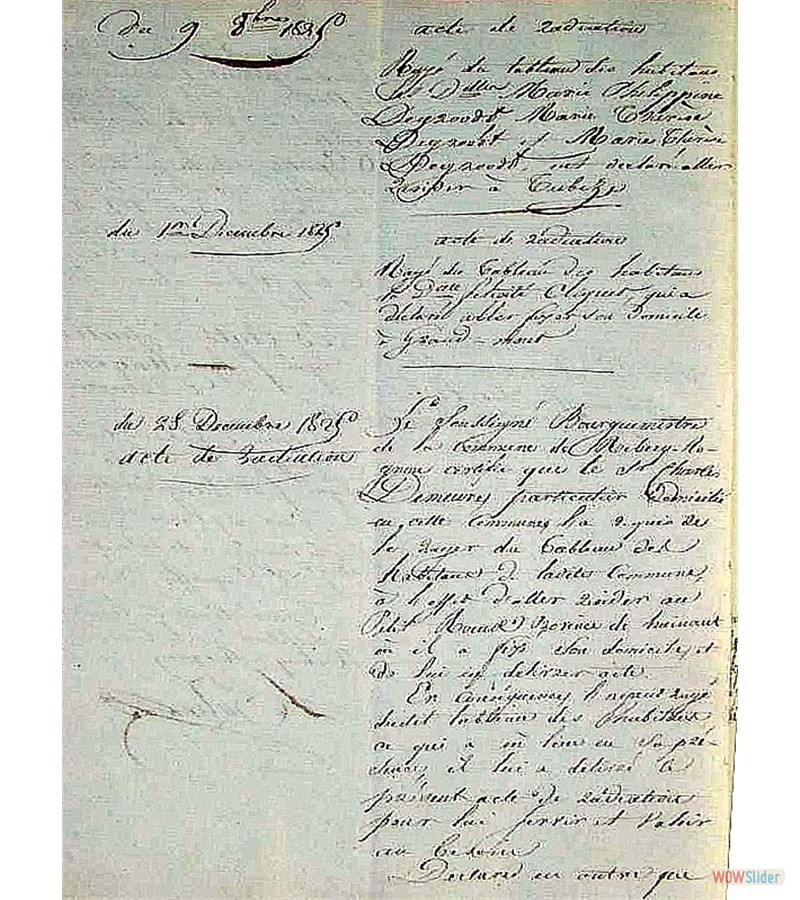 du 9 8bres 1825
acte de radiation
Rayé du tableau des habitans
les Dlles Marie Philippine
Marie Thérèse
et Marie Thérèse
ont déclaré aller
résider à Tubize
du 1er Decembre 1825
acte de radiation
Rayé du Tableau des habitans
la Dlle felicité Cliquet, qui a
déclaré aller fixer son domicile
à Grand-mont
du 28 Decembre 1825
acte de radiation
Le soussigné Bourguemestre
de la Commune de Rebecq-Ro-
gnon certifie que le Sr Charles
Demeure, particulier domicilié
en cette Commune, l'a requis de
le rayer du Tableau des
habitans de ladite Commune,
à l'effet d'aller résider au
Petit Province de hainaut
où il a fixé son domicile, et
de lui en délivrer acte.
En conséquence, l'ayant rayé
dudit tableau des habitans
ce qui a eu lieu en sa pré-
sence, il lui a délivré le
présent acte de radiation
pour lui servir et valoir
au besoin
Declarant en outre que
WOWSlider